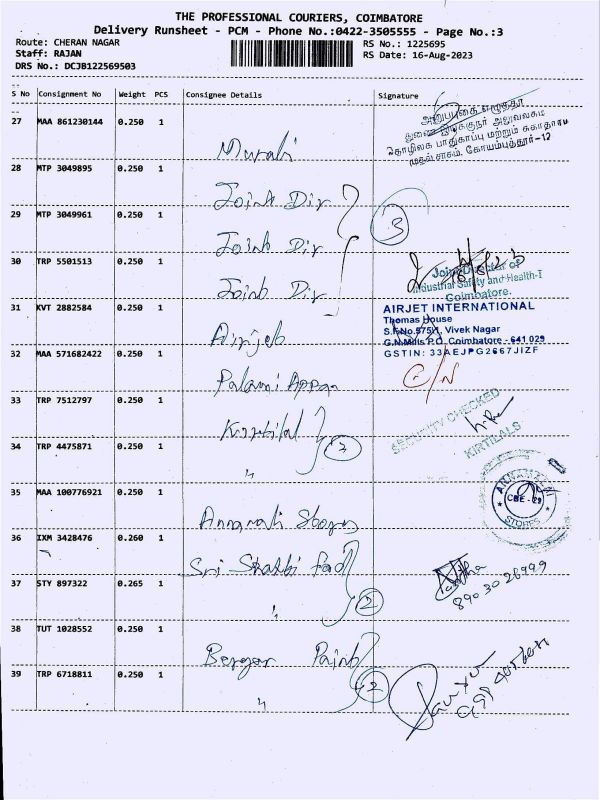 THE PROFESSIONAL COURIERS, COIMBATORE
Delivery Runsheet - PCM - Phone No.:0422-3505555 - Page No.:3
Route: CHERAN NAGAR RS No.: 1225695
Staff: RAJAN RS Date: 16-Aug-2023
DRS No.: DCJB122569503
S No Consignment No Weight PCS Consignee Details Signature
27 MAA 861230144 0.250 1
துணை இயக்குநர் அலுவலகம்
தொழிலக பாதுகாப்பு மற்றும் சுகாதாரம்
கோயம்புத்தூர்-12
Murali
28 MTP 3049895 0.250 1
Joint Dir
29 MTP 3049961 0.250 1
3
Joint Dir
30 TRP 5501513 0.250 1
Joint Director of
Industrial Safety and Health-I
Coimbatore.
Joint Dir
31 KVT 2882584 0.250 1
AIRJET INTERNATIONAL
Thomas House
S.F.No.575/1, Vivek Nagar
G.N.Mills P.O, Coimbatore - 641 029
GSTIN: 33AEJPG2667J1ZF
Airjet
32 MAA 571682422 0.250 1
C/N
Palani Appan
33 TRP 7512797 0.250 1
SECURITY CHECKED
KIRTILALS
Kirtilal
34 TRP 4475871 0.250 1
"
35 MAA 100776921 0.250 1
ANNAMALAI
CBE - 29
STORES
Annamali Stores
36 IXM 3428476 0.260 1
Sri Shakthi
37 STY 897322 0.265 1
8903026999
" 2
38 TUT 1028552 0.250 1
Berger Paint
39 TRP 6718811 0.250 1
" 2